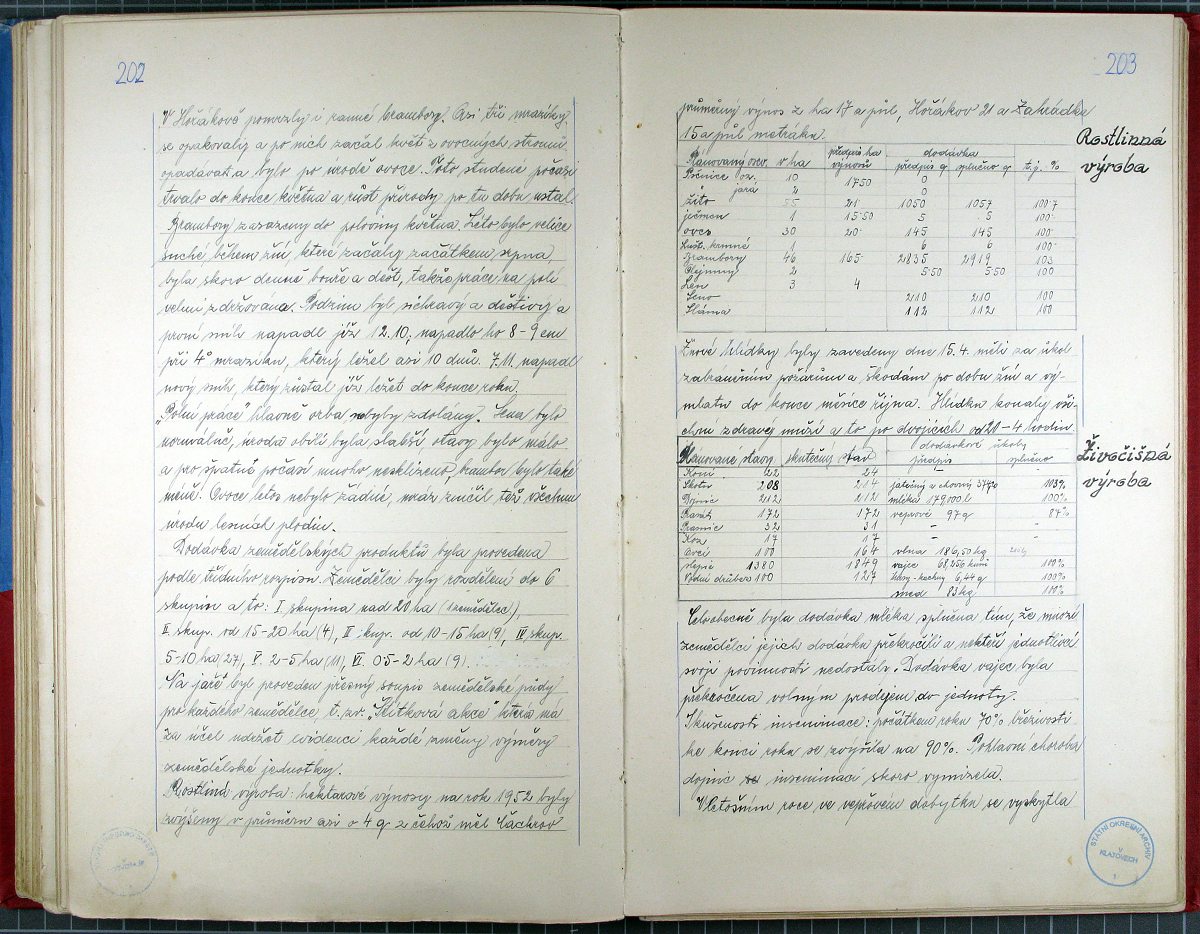 202
V Hořákově pomrzly i ranné brambory. Asi tři mrazíky
se opakovaly a po nich začal květ z ovocných stromů
opadávat a bylo po úrodě ovoce. Toto studené počasí
trvalo do konce května a růst přírody po tu dobu ustal.
Brambory zasazeny do poloviny května. Léto bylo velice
suché, během žní, které začaly začátkem srpna,
byla skoro denně bouře a déšť, takže práce na poli
velmi zdržována. Podzim byl sichravý a deštivý a
první sníh napadl již 12.10; napadlo ho 8-9 cm
při 4° mrazíku, který ležel asi 10 dnů. 7.11. napadl
nový sníh, který zůstal již ležet do konce roku.
"Polní práce" hlavně orba nebyly zdolány. Sena bylo
normálně, úroda obilí byla slabší otavy bylo málo
a pro špatné počasí mnoho nesklizeno, brambor bylo také
méně. Ovoce letos nebylo žádné, mráz zničil též všechnu
úrodu lesních plodin.
Dodávka zemědělských produktů byla provedena
podle třídního rozpisu. Zemědělci byly rozděleni do 6
skupin a to: I skupina nad 20 ha (1 zemědělec)
II. skup. od 15-20 ha (4), III skup. od 10-15 ha (9), IV skup.
5-10 ha (27), V. 2-5 ha (11), VI. 05-2 ha (9).
Na jaře byl proveden přesný soupis zemědělské půdy
pro každého zemědělce, t. zv. "Lístková akce" která má
za účel udržet evidenci každé změny výměry
zemědělské jednotky.
Rostliná výroba: hektarové výnosy na rok 1952 byly
zvýšeny v průměru asi o 4 q z čehož měl Čachrov
203
průměrný výnos z ha 17 a půl, Hořákov 21 a Zahrádka
15 a půl metráku.
Rostlinná
výroba
Plánovaný osev. v ha předpis ha výnosů dodávka předpis q splněno q t.j. %
Pšenice oz. 10 17·50 0
jará 2 0
Žito 55 21 1050 1057 100·7
ječmen 1 15·50 5 5 100·
oves 30 20· 145 145 100·
Lušt. krmné 1 6 6 100·
Brambory 46 165· 2835 2919 103
Olejniny 2 5·50 5·50 100
Len 3 4
Seno 210 210 100
Sláma 112 112 100
Žňové hlídky byly zavedeny dne 15.4. měli za úkol
zabráněním požárům a škodám po dobu žní a vý-
mlatu do konce měsíce října. Hlídku konaly vši-
chni zdravý muži a to po dvojicích od 20-4 hodin.
Živočišná
výroba
Plánované stavy skutečný stav dodávkové úkoly předpis splněno
Koní 22 24 - -
Skotu 208 214 jatečný a chovný 103%
Dojnic 212 212 mléka 179,000 l 100%
Prasat 172 172 vepřové 97 q 87%
Prasnic 32 31 - -
Koz 17 17 -
Ovcí 100 164 vlna 186,50 kg
slepic 1380 1849 vajec 68,256 kusů 100%
Vodní drůbeže 100 127 husy-kachny 6,44 q 100%
med 83 kg 100%
Celoobecně byla dodávka mléka splněna tím, že mnozí
zemědělci jejich dodávku překročili a někteří jednotlivci
svojí povinnosti nedostáli. Dodávka vajec byla
překročena volným prodejem do jednoty.
Zkušenosti inseminace: počátkem roku 70% březivosti
ke konci roku se zvýšila na 90%. Pohlavní choroba
dojnic inseminací skoro vymizela.
V letošním roce ve vepřovém dobytku se vyskytla
STÁTNÍ OKRESNÍ ARCHIV
V
KLATOVECH
1